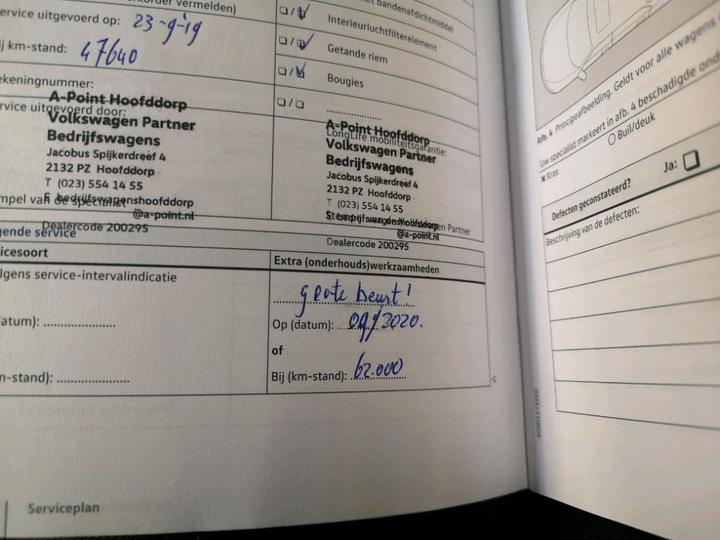 korder vermelden)
ervice uitgevoerd op: 23-9-19
ij km-stand: 47640
ekeningnummer:
rvice uitgevoerd door:
A-Point Hoofddorp
Volkswagen Partner
Bedrijfswagens
Jacobus Spijkerdreef 4
2132 PZ Hoofddorp
T (023) 554 14 55
E bedrijfswagenshoofddorp
@a-point.nl
Dealercode 200295
mpel van de specialist
het bandenafdichtmiddel
Interieurluchtfilterelement
Getande riem
Bougies
LongLife mobiliteitsgarantie:
A-Point Hoofddorp
Volkswagen Partner
Bedrijfswagens
Jacobus Spijkerdreef 4
2132 PZ Hoofddorp
T (023) 554 14 55
@a-point.nl
Dealercode 200295
gende service
icesoort
lgens service-intervalindicatie
datum):
n-stand):
Extra (onderhouds)werkzaamheden
grote beurt!
Op (datum): 09/2020.
of
Bij (km-stand): 62.000
Serviceplan
Afb. 4 Principeafbeelding. Geldt voor alle wagens
Uw specialist markeert in afb. 4 beschadigde ond
Kras
Buil/deuk
Defecten geconstateerd?
Ja:
Beschrijving van de defecten: